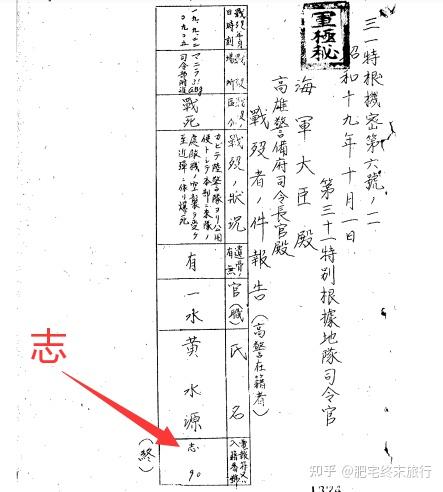 軍極秘
三一特根機密第六號ノ二
昭和十九年十月一日
第三十一特別根據地隊司令官
海軍大臣殿
高雄警備府司令長官殿
戰歿者ノ件報告(高警在籍者)
戰歿年月
日時刻
場所
區分
戰歿ノ狀況
遺骨ノ
有無
官(職)
氏名
入籍番號
マニラ31Gbg
司令部附近
戰死
カビテ陸警隊ヨリ公用
使トシテ本部ニ來隊ノ
處敵機ノ空襲ヲ受ケ
至近彈ニ依リ爆死
有
一水
黃水源
志
90
(終)
志
知乎 @肥宅终末旅行